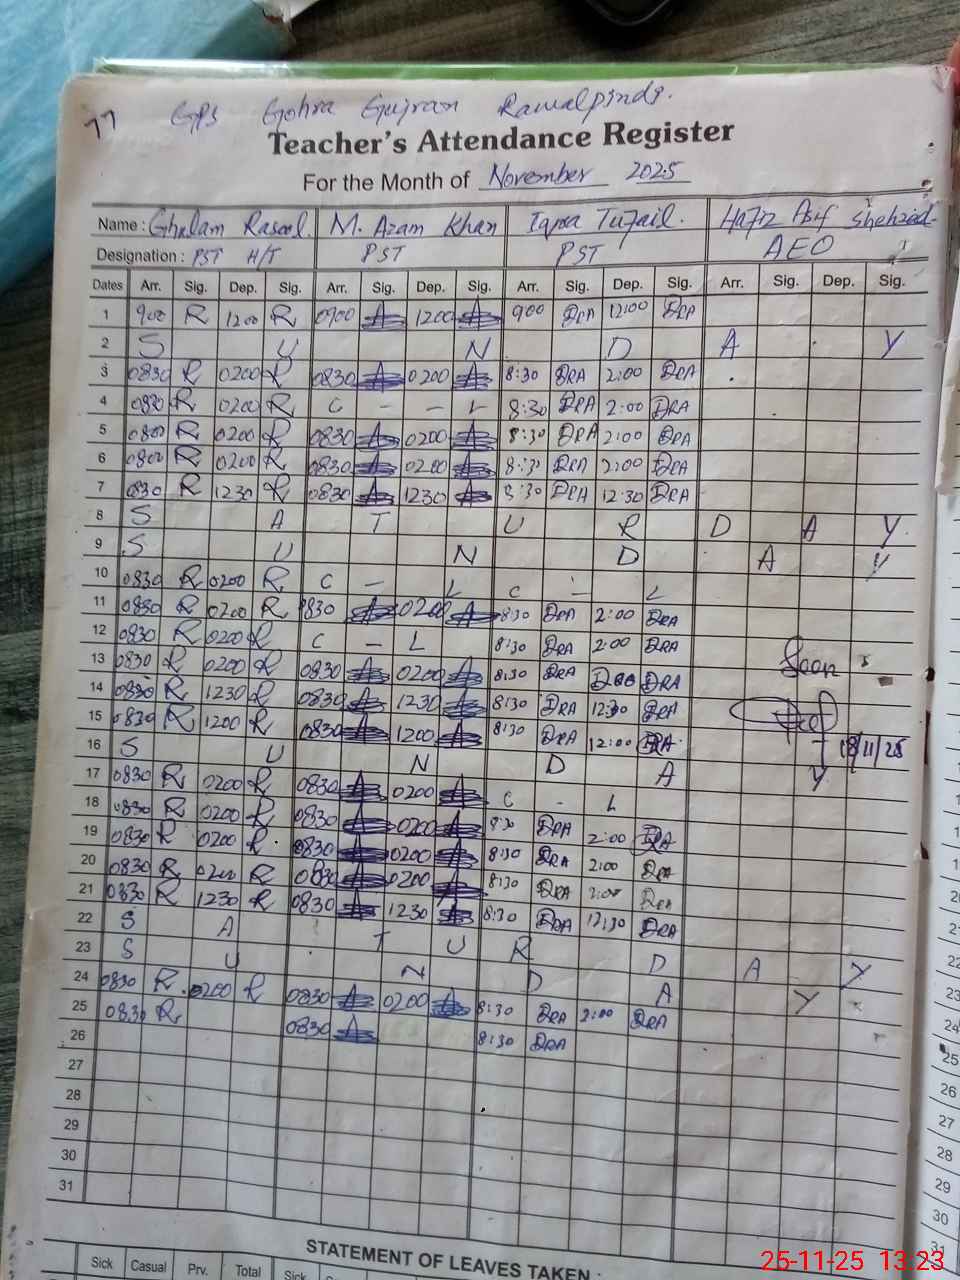 77 GPS Gohra Gujran Rawalpindi.
Teacher's Attendance Register
For the Month of November 2025
Name : Ghulam Rasool M. Azam Khan Iqra Tufail. Hafiz Asif Shehzad
Designation : PST H/T PST PST AEO
Dates Arr. Sig. Dep. Sig. Arr. Sig. Dep. Sig. Arr. Sig. Dep. Sig. Arr. Sig. Dep. Sig.
1 900 R 1200 R 0900 1200 900 DRA 12:00 DRA
2 S U N D A Y
3 0830 R 0200 R 0830 0200 8:30 DRA 2:00 DRA
4 0830 R 0200 R C - - L 8:30 DRA 2:00 DRA
5 0800 R 0200 R 0830 0200 8:30 DRA 2:00 DRA
6 0800 R 0200 R 0830 0200 8:30 DRA 2:00 DRA
7 0830 R 1230 R 0830 1230 8:30 DRA 12:30 DRA
8 S A T U R D A Y
9 S U N D A Y
10 0830 R 0200 R C - L C - L
11 0830 R 0200 R 0830 0200 8:30 DRA 2:00 DRA
12 0830 R 0200 R C - L 8:30 DRA 2:00 DRA
13 0830 R 0200 R 0830 0200 8:30 DRA DRA Seen
14 0830 R 1230 R 0830 1230 8:30 DRA 12:30 DRA
15 0830 R 1200 R 0830 1200 8:30 DRA 12:00 DRA
16 S U N D A Y 18/11/25
17 0830 R 0200 R 0830 0200 C - L
18 0830 R 0200 R 0830 0200 8:30 DRA 2:00 DRA
19 0830 R 0200 R 0830 0200 8:30 DRA 2:00 DRA
20 0830 R 0200 R 0830 0200 8:30 DRA 2:00 DRA
21 0830 R 1230 R 0830 1230 8:30 DRA 12:30 DRA
22 S A T U R D A Y
23 S U N D A Y
24 0830 R 0200 R 0830 0200 8:30 DRA 2:00 DRA
25 0830 R 0830 8:30 DRA
26
27
28
29
30
31
STATEMENT OF LEAVES TAKEN :
Sick Casual Prv. Total Sick
22
23
24
25
26
27
28
29
30
31
25-11-25 13:23